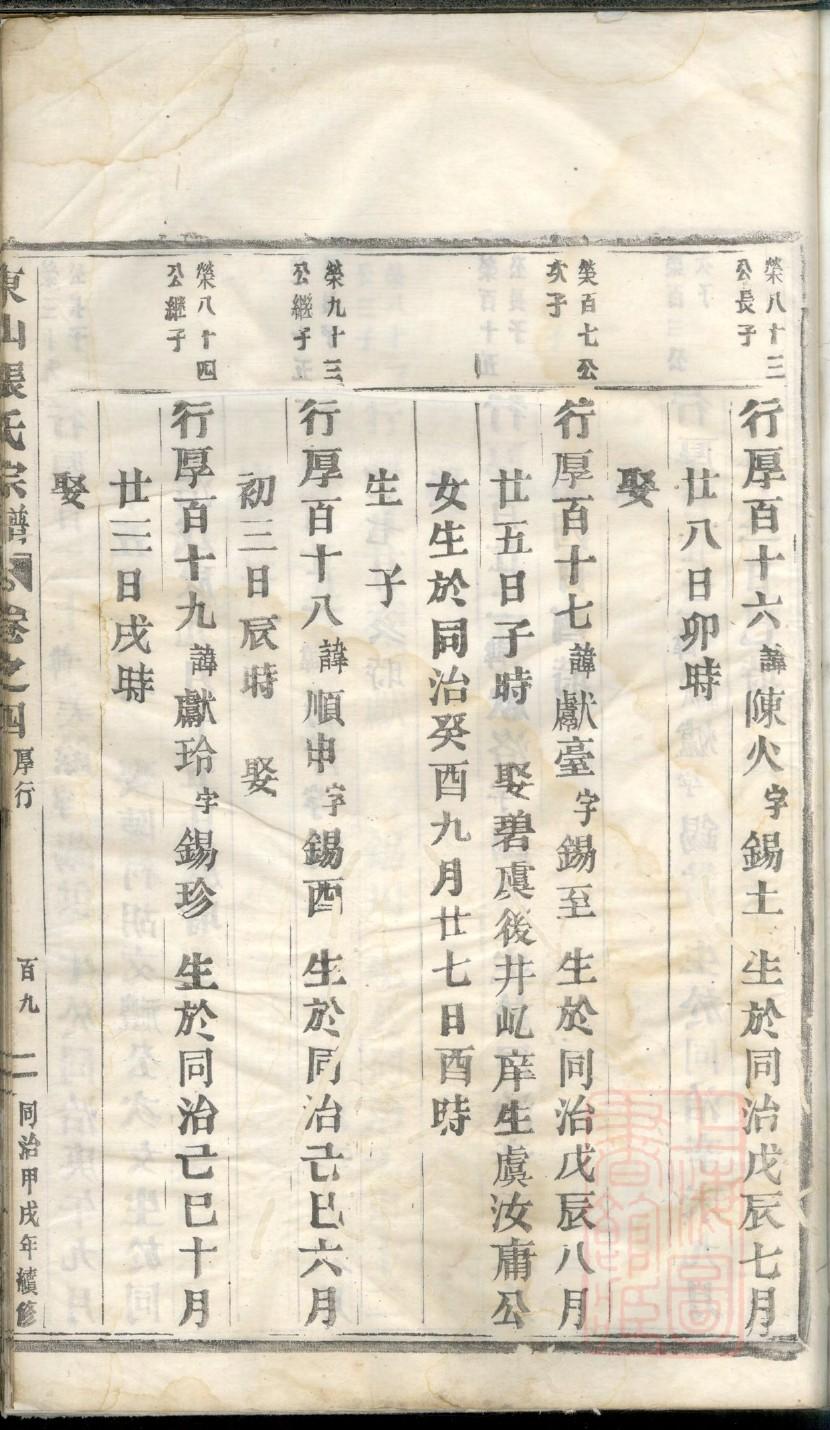 榮八十三
公長子
行厚百十六諱陳火字錫土 生於同治戊辰七月
廿八日卯時
娶
榮百七公
次子
行厚百十七諱獻臺字錫至 生於同治戊辰八月
廿五日子時 娶碧虞後井屹庠生虞汝庸公
女生於同治癸酉九月廿七日酉時
生子
榮九十三
公繼子
行厚百十八諱順申字錫酉 生於同治己巳六月
初三日辰時 娶
榮八十四
公繼子
行厚百十九諱獻玲字錫珍 生於同治己巳十月
廿三日戌時
娶
東山張氏宗譜 卷之四 厚行 百九 同治甲戌年續修